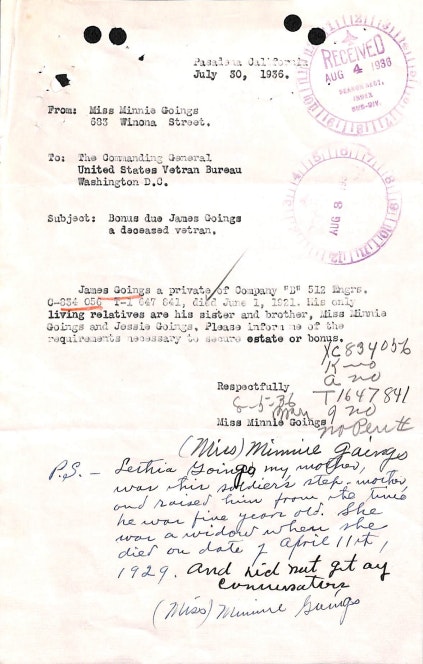 Pasadena California
July 30, 1936.
RECEIVED
AUG 4 1936
SEARCH SECT.
INDEX
SUB-DIV.
From: Miss Minnie Goings
683 Winona Street.
To: The Commanding General
United States Vetran Bureau
Washington D.C.
AUG 3
Subject: Bonus due James Goings
a deceased vetran.
James Goings a private of Company "D" 512 Engrs.
C-834 056 T-1 647 841, died June 1, 1921. His only
living relatives are his sister and brother, Miss Minnie
Goings and Jessie Goings. Please inform me of the
requirements necessary to secure estate or bonus.
XC834056
K-no
A no
T1647841
g no
no Per
Respectfully
8-5-36
Miss Minnie Goings
(Miss) Minnie Goings
P.S. – Goings my mother,
was this soldier's step-mother,
and raised him from the time
he was five year old. She
was a widow when she
died on date of April 11th,
1929. And did not get any
(Miss) Minnie Goings